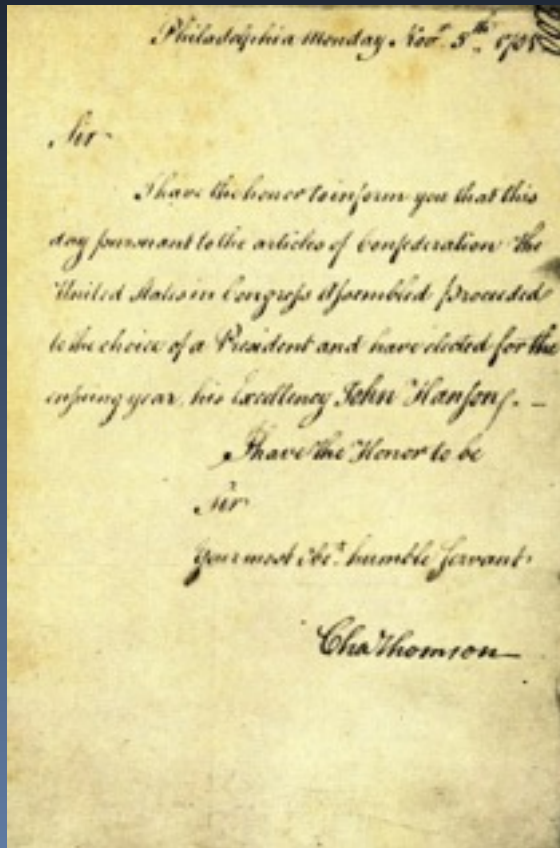 Philadelphia Monday Nov.r 5.th 1781
Sir
I have the honor to inform you that this
day pursuant to the articles of Confederation the
United States in Congress Assembled proceeded
to the choice of a President and have elected for the
ensuing year, his Excellency John Hanson. —
I have the Honor to be
Sir
Your most obe.t humble servant
Cha Thomson